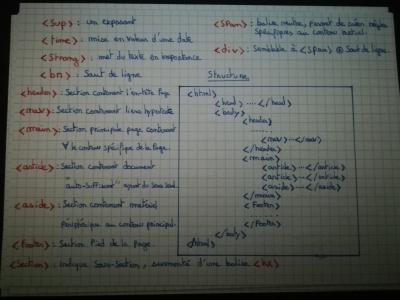 <Sup> : un exposant
<time> : mise en valeur d'une date
<Strong> : met du texte en importance
<br> : Saut de ligne
<header> : Section contenant l'en-tête Page
<nav> : Section contenant liens hypertexte
<main> : Section principale page contenant
∀ le contenu spécifique de la Page.
<article> : Section contenant document
"auto-suffisant" ayant du sens seul.
<aside> : Section contenant matériel
périphérique au contenu principal.
<Footer> : Section Pied de la Page.
<Section> : Indique Sous-Section, surmonté d'une balise <hX>
<Span> : balise neutre, permet de créer règles
Spécifiques au contenu textuel.
<div> : Semblable à <Span> ⊕ Saut de ligne.
Structure
<html>
<head> ... </head>
<body>
<header>
......
<nav> ... </nav>
</header>
<main>
<article> ... </article>
<article> ... </article>
<aside> ... </aside>
</main>
<Footer>
......
</Footer>
</body>
</html>